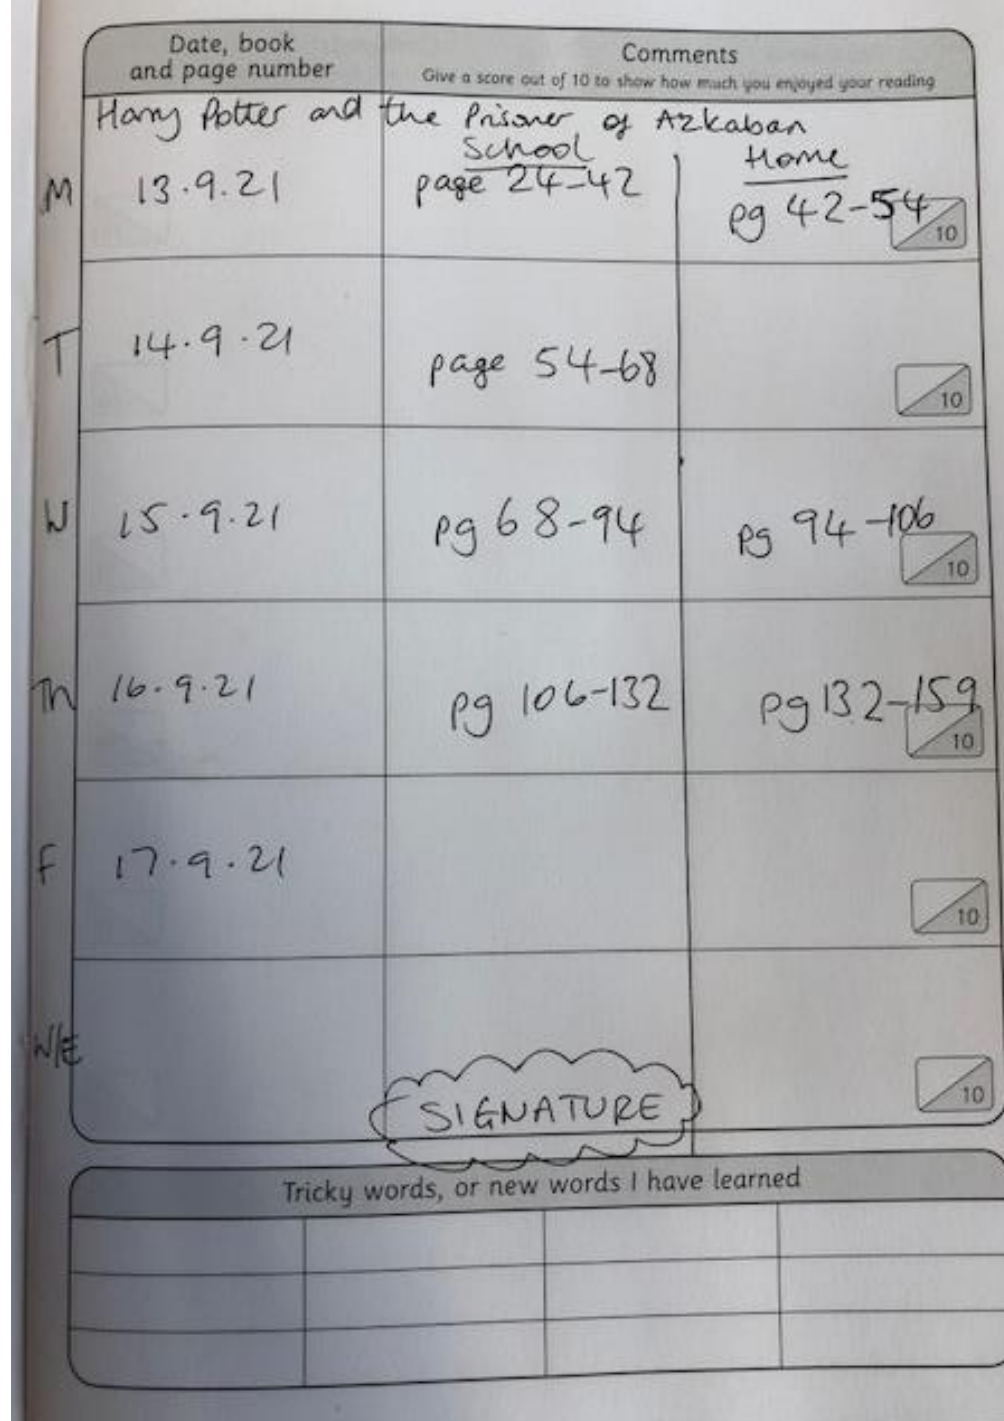 Date, book
and page number
Comments
Give a score out of 10 to show how much you enjoyed your reading
Harry Potter and the Prisoner of Azkaban
School
Home
M
13.9.21
page 24-42
pg 42-54
10
T
14.9.21
page 54-68
10
W
15.9.21
pg 68-94
pg 94-106
10
Th
16.9.21
pg 106-132
pg 132-159
10
F
17.9.21
10
W/E
10
SIGNATURE
Tricky words, or new words I have learned